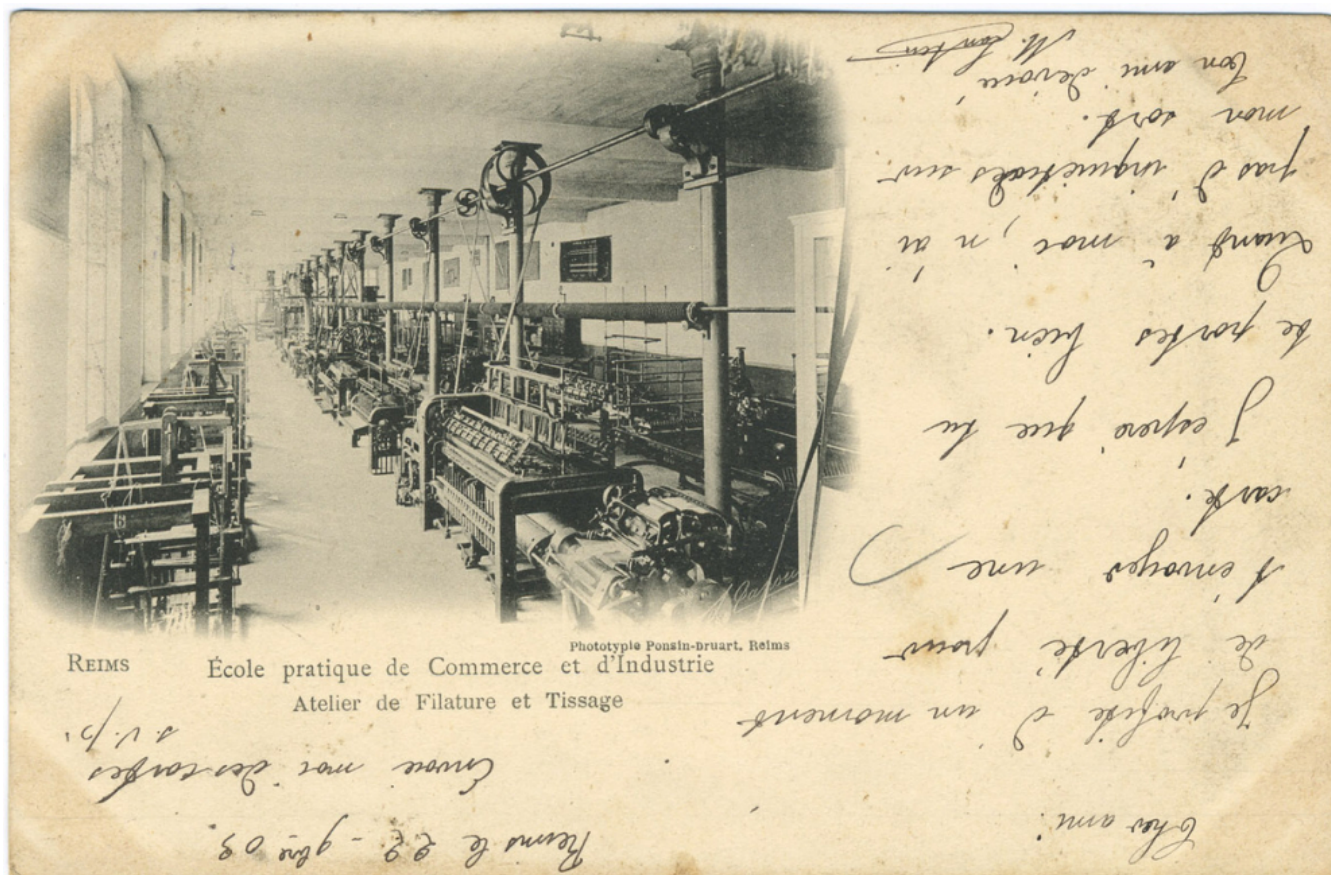 Phototypie Ponsin-Druart, Reims
REIMS École pratique de Commerce et d'Industrie
Atelier de Filature et Tissage
Reims le 22 - 9bre 03
Cher ami.
Je profite d'un moment
de liberté pour
t'envoyer une
carte.
J'espère que tu
te portes bien.
Quand à moi, n'ai
pas d'inquiétudes sur
mon sort.
Ton ami dévoué
M.
Envoie moi des cartes
s.v.p.